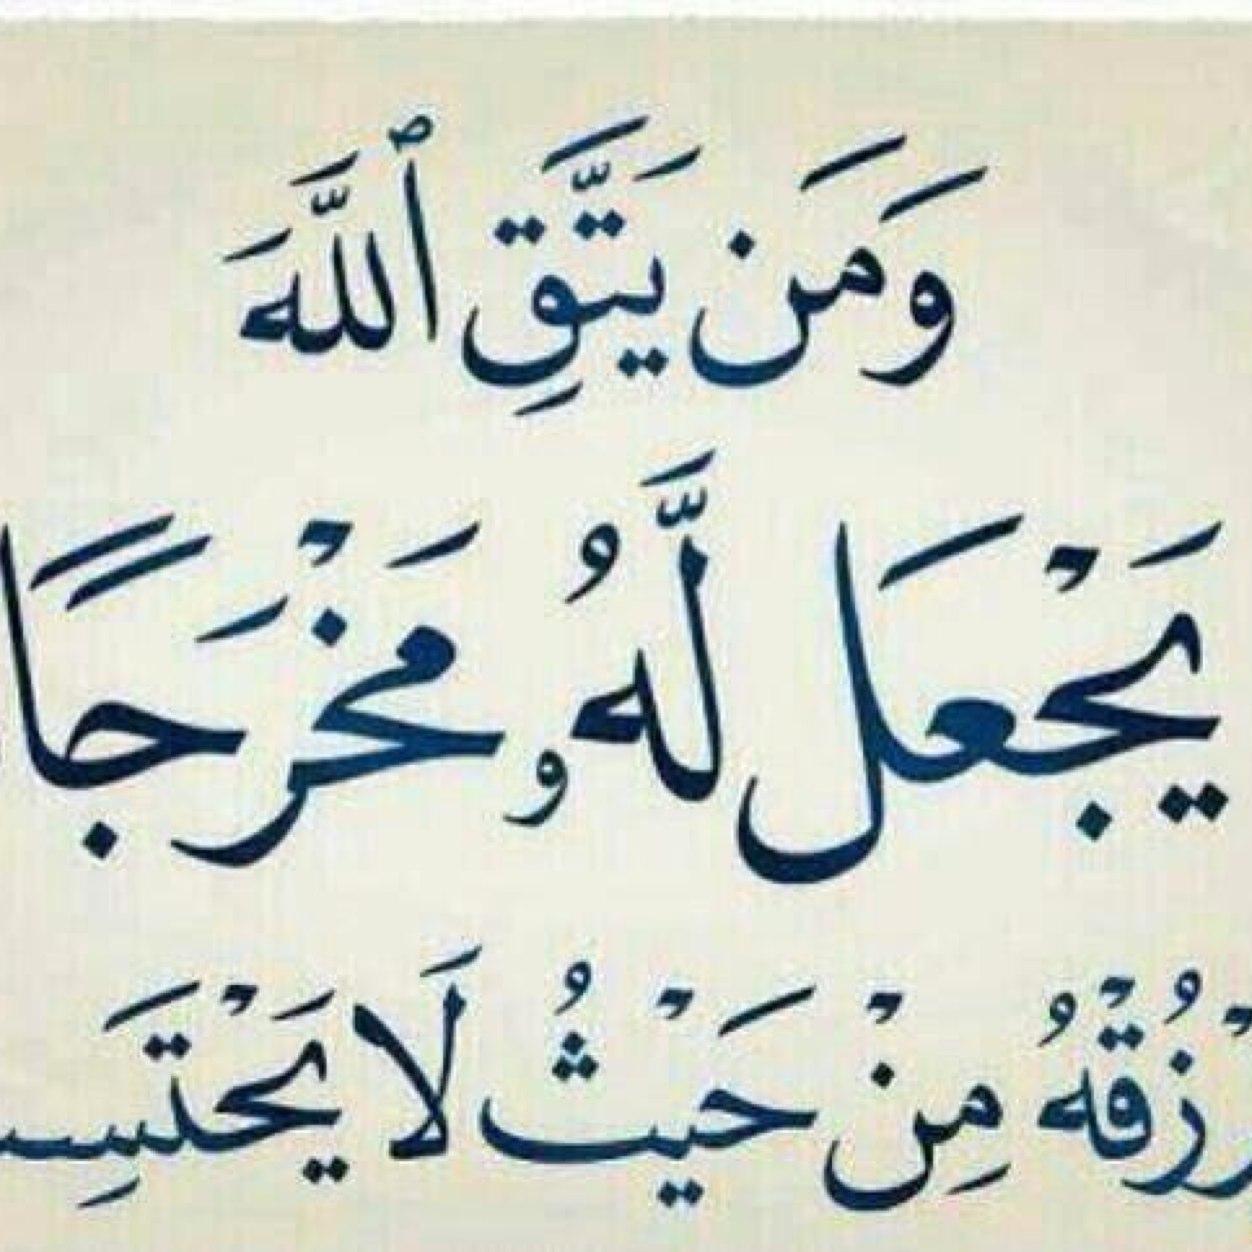 وَمَن يَتَّقِ ٱللَّهَ
يَجْعَل لَّهُۥ مَخْرَجًا
رْزُقْهُ مِنْ حَيْثُ لَا يَحْتَسِ